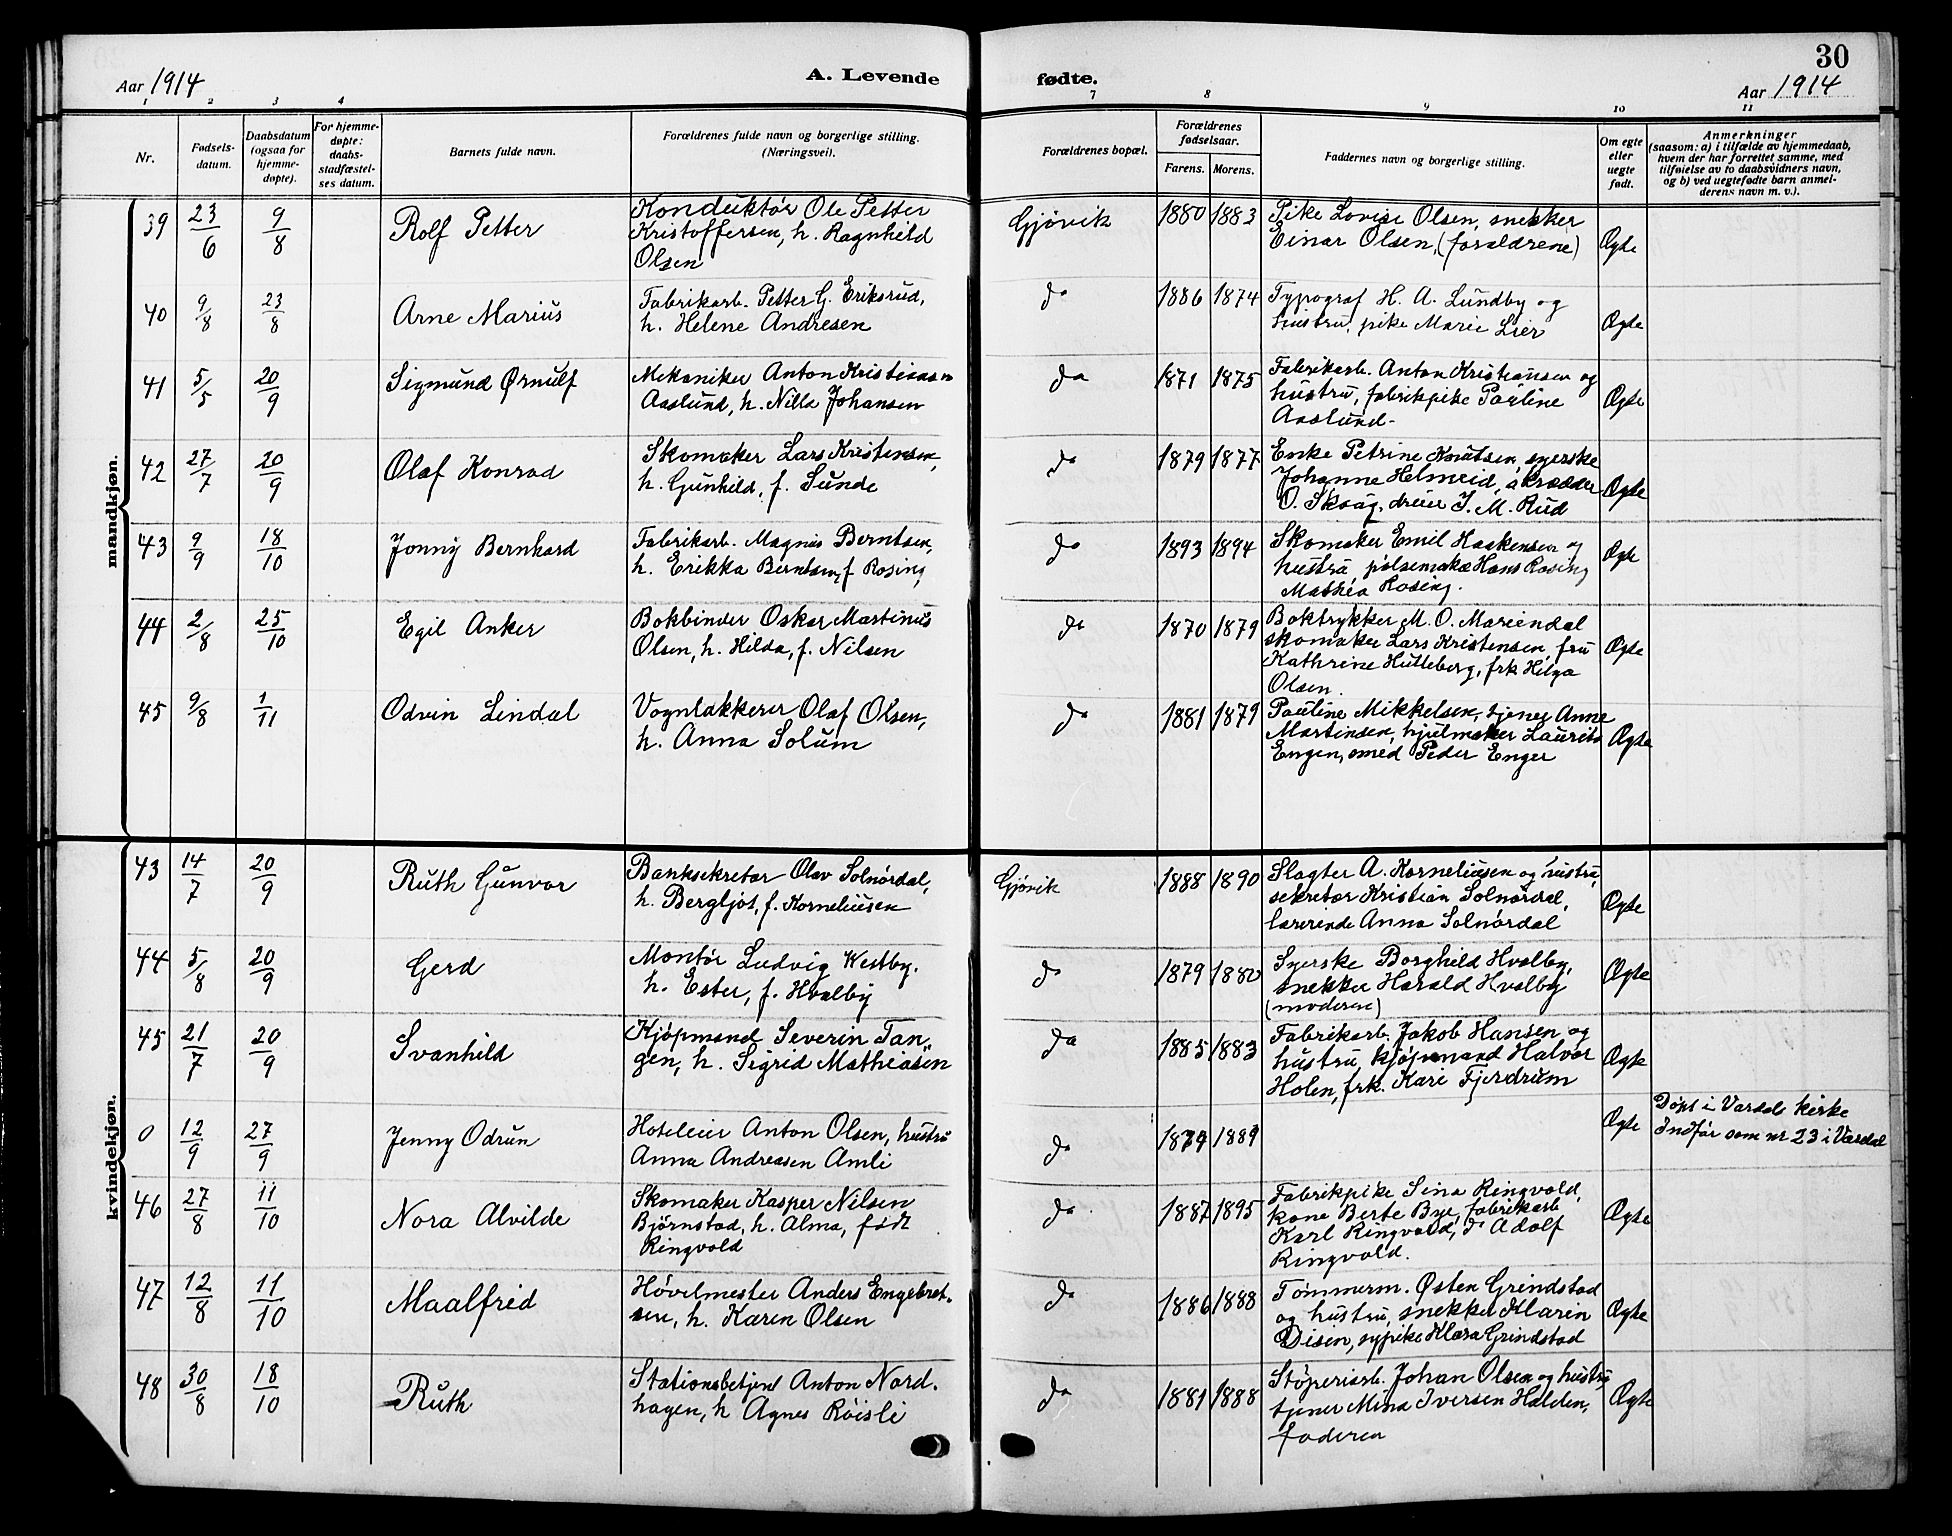 30
Aar 1914
A. Levende
fødte.
Aar 1914
1 2 3 4 7 8 9 10 11
Nr.
Fødsels-
datum.
Daabsdatum
(ogsaa for
hjemme-
døpte).
For hjemme-
døpte:
daabs-
stadfæstel-
ses datum.
Barnets fulde navn.
Forældrenes fulde navn og borgerlige stilling.
(Næringsvei).
Forældrenes bopæl.
Forældrenes
fødselsaar.
Farens. Morens.
Faddernes navn og borgerlige stilling.
Om egte
eller
uegte
født.
Anmerkninger
(saasom: a) i tilfælde av hjemmedaab,
hvem der har forrettet samme, med
tilføielse av to daabsvidners navn,
og b) ved uegtefødte barn anmel-
derens navn m. v.).
mandkjøn.
39 23/6 9/8 Rolf Petter
Konduktør Ole Petter
Kristoffersen, h. Ragnhild
Olsen
Gjøvik 1880 1883
Pike Lovise Olsen, snekker
Einar Olsen, (forældrene)
Ægte
40 9/8 23/8 Arne Marius
Fabrikarb. Petter G. Eriksrud,
h. Helene Andresen
do 1886 1874
Typograf H. A. Lundby og
hustru, pike Marie Lier
Ægte
41 5/5 20/9 Sigmund Ørnulf
Mekaniker Anton Kristiansen
Aaslund, h. Nilla Johansen
do 1871 1875
Fabrikarb. Anton Kristiansen og
hustru, fabrikpike Pauline
Aaslund.
Ægte
42 27/7 20/9 Olaf Konrad
Skomaker Lars Kristensen,
h. Gunhild, f. Sunde
do 1879 1877
Enke Petrine Knutsen, syerske
Johanne Helmeid, skrædder
O. Skaug, dreier J. M. Rud
Ægte
43 9/9 18/10 Jonny Bernhard
Fabrikarb. Magnus Berntsen,
h. Erikka Berntsen, f. Rosing
do 1893 1894
Skomaker Emil Haakensen og
hustru pølsemak. Hans Rosing
Mathea Rosing.
Ægte
44 2/8 25/10 Egil Anker
Bokbinder Oskar Martinus
Olsen, h. Hilda, f. Nilsen
do 1870 1879
Boktrykker M. O. Mariendal
skomaker Lars Kristensen, fru
Kathrine Hutteberg, frk Helga
Olsen.
Ægte
45 9/8 1/11 Odvin Lindal
Vognlakkerer Olaf Olsen,
h. Anna Solum
do 1881 1879
Pauline Mikkelsen, tjener Anne
Martinsen, hjulmaker Laurits
Engen, smed Peder Enger
Ægte
kvindekjøn.
43 14/7 20/9 Ruth Gunvor
Banksekretær Olav Solnørdal,
h. Bergljot, f. Korneliussen
Gjøvik 1888 1890
Slagter A. Korneliusen og hustru,
sekretær Kristian Solnørdal,
lærerinde Anna Solnørdal
Ægte
44 5/8 20/9 Gerd
Montør Ludvig Westby.
h. Ester, f. Hvalby
do 1879 1880
Syerske Borghild Hvalby,
snekker Harald Hvalby
(moderen)
Ægte
45 21/7 20/9 Svanhild
Kjøpmand Severin Tan-
gen, h. Sigrid Mathiasen
do 1885 1883
Fabrikarb. Jakob Hansen og
hustru, kjøpmand Halvor
Holen, frk. Kari Fjerdrum
Ægte
0 12/9 27/9 Jenny Odrun
Hoteleier Anton Olsen, hustru
Anna Andreasen Amli
do 1879 1889
Ægte
Døpt i Vardal kirke
Indført som nr 23 i Vardal
46 27/8 11/10 Nora Alvilde
Skomaker Kasper Nilsen
Bjørnstad, h. Alma, født
Ringvold
do 1887 1895
Fabrikpike Sina Ringvold,
kone Berte Bye, fabrikarb
Karl Ringvold, do Adolf
Ringvold.
Ægte
47 12/8 11/10 Maalfrid
Høvelmester Anders Engebret-
sen, h. Karen Olsen
do 1886 1888
Tømmerm. Østen Grindstad
og hustru, snekker Klarin
Disen, sypike Klara Grindstad
Ægte
48 30/8 18/10 Ruth
Stationsbetjent Anton Nord-
hagen, h Agnes Røisli
do 1881 1888
Støperiarb. Johan Olsen og hustru
tjener Mina Iversen Halden,
faderen
Ægte